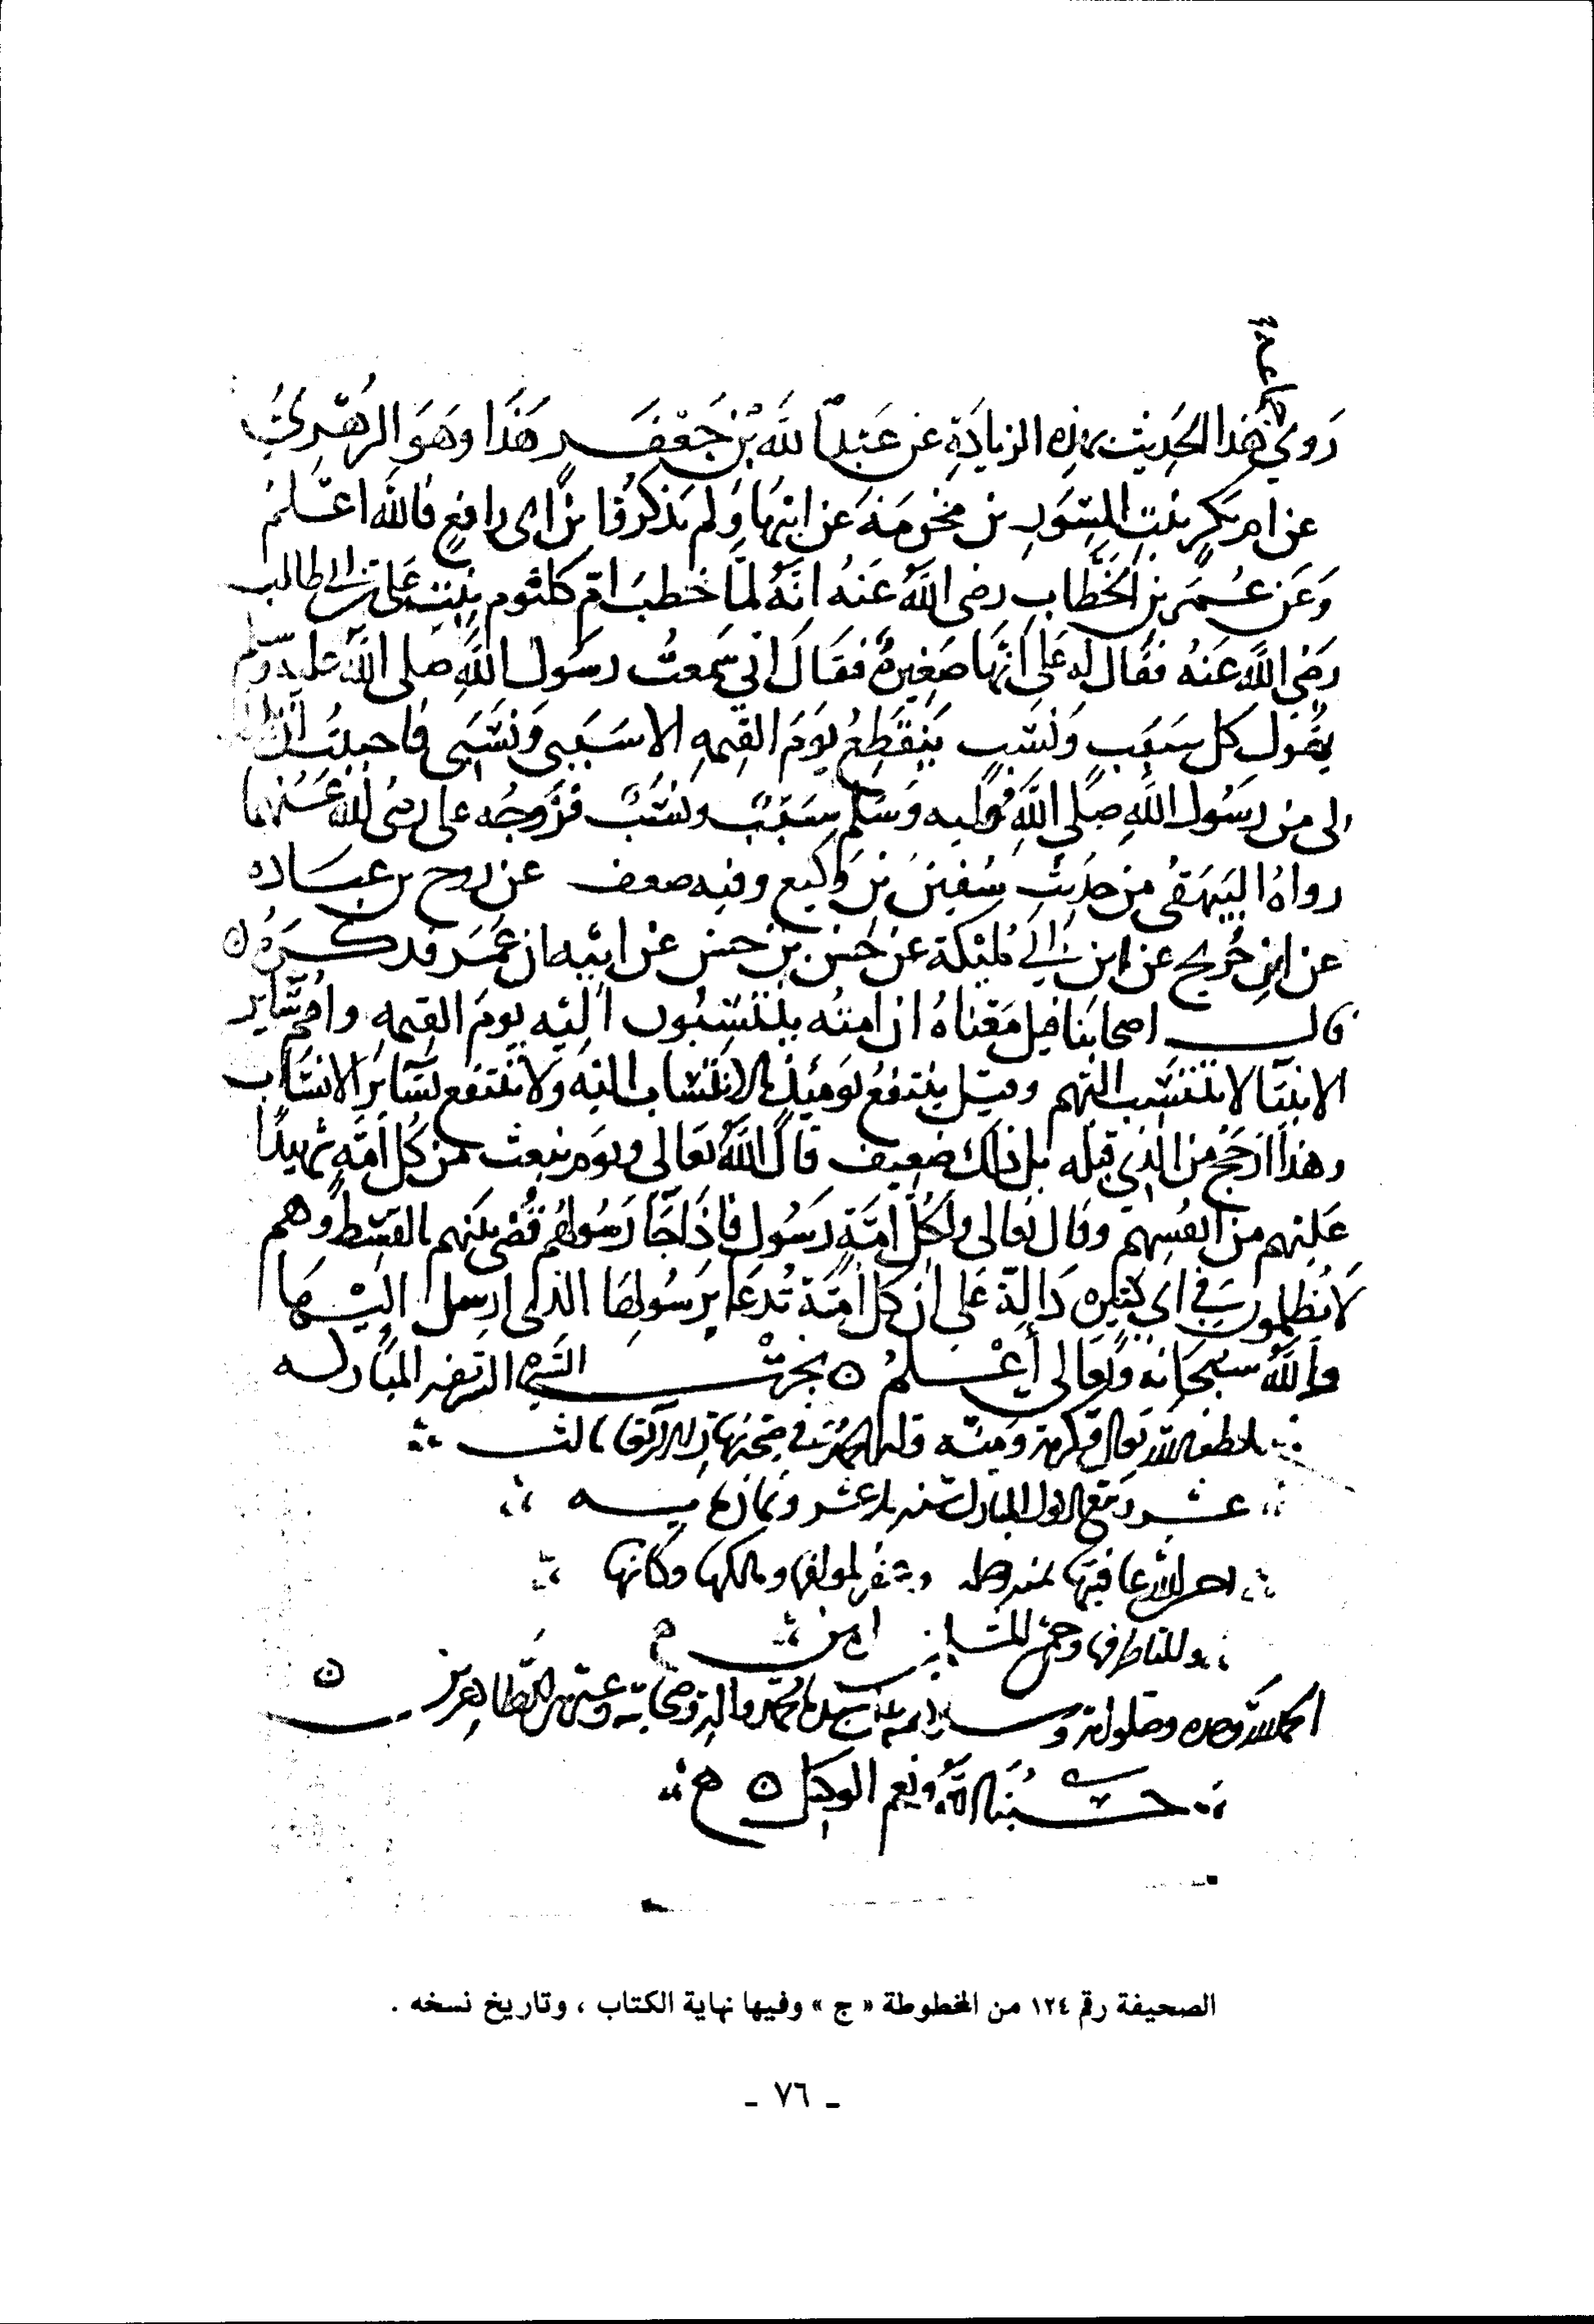 جماعة
روي هذا الحديث بهذه الزيادة عن عبد الله بن جعفر هذا وهو الزهري
عن ام بكر بنت المسور بن مخرمة عن ابيها ولم يذكروا بن ابي رافع فالله اعلم
وعن عمر بن الخطاب رضي الله عنه انه لما خطب ام كلثوم بنت علي بن ابي طالب
رضي الله عنه فقال له علي انها صغيرة فقال اني سمعت رسول الله صلى الله عليه وسلم
يقول كل سبب ونسب ينقطع يوم القيمه الا سببي ونسبي فاحببت ان يكون
لي من رسول الله صلى الله عليه وسلم سبب ونسب فزوجه علي رضي الله عنهما
رواه البيهقي من حديث سفين بن وكيع وفيه ضعف عن روح بن عباده
عن ابن جريج عن ابن ابي مليكة عن حسن بن حسن عن ابيه ان عمر فذكره ن
قال اصحابنا قيل معناه ان امته ينتسبون اليه يوم القيمه وامم ساير
الانبيا لا تنتسب اليهم وقيل ينتفع يوميذ بالانتساب اليه ولا ينتفع بساير الانساب
وهذا ارجح من الذي قبله بل ذلك ضعيف قال الله تعالى ويوم نبعث من كل امة شهيدا
عليهم من انفسهم وقال تعالى ولكل امة رسول فاذا جا رسولهم قضي بينهم بالقسط وهم
لا يظلمون في اي كثيره دالة على ان كل امة تدعا برسولها الذي ارسل اليها
والله سبحانه وتعالى أعلم ن نجزت السيرة الشريفه المباركه
بلطف الله تعالى وكرمه ومنه وله الحمد في ثالث
عشر ربيع الاول المبارك سنه عشر وثمان مايه
احسن الله عاقبتها بمنه وغفر لمولفها ومالكها وكاتبها
وللناظر فيها وجميع المسلمين امين م
الحمد لله وحده وصلواته وسلامه على سيدنا محمد واله وصحابته وعترته الطاهرين ن
حسبنا الله ونعم الوكيل ن
الصحيفة رقم ١٢٤ من المخطوطة « ج » وفيها نهاية الكتاب ، وتاريخ نسخه .
- ٧٦ -